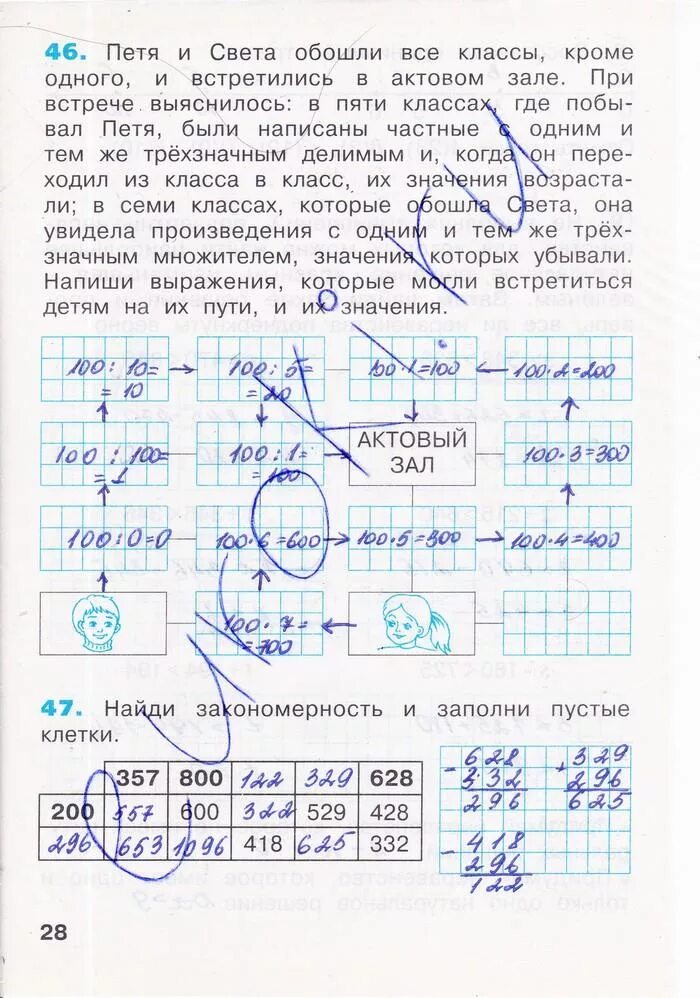 46. Петя и Света обошли все классы, кроме
одного, и встретились в актовом зале. При
встрече выяснилось: в пяти классах, где побы-
вал Петя, были написаны частные с одним и
тем же трёхзначным делимым и, когда он пере-
ходил из класса в класс, их значения возраста-
ли; в семи классах, которые обошла Света, она
увидела произведения с одним и тем же трёх-
значным множителем, значения которых убывали.
Напиши выражения, которые могли встретиться
детям на их пути, и их значения.
100 : 10 = = 10 100 : 5 = = 20 100 · 1 = 100 100 · 2 = 200
100 : 100 = = 1 100 : 1 = = 100 АКТОВЫЙ ЗАЛ 100 · 3 = 300
100 : 0 = 0 100 · 6 = 600 100 · 5 = 300 100 · 4 = 400
100 · 7 = = 700
47. Найди закономерность и заполни пустые
клетки.
357 800 122 329 628
200 557 600 322 529 428
296 653 1096 418 625 332
- 628 332 296
+ 329 296 625
- 418 296 122
28